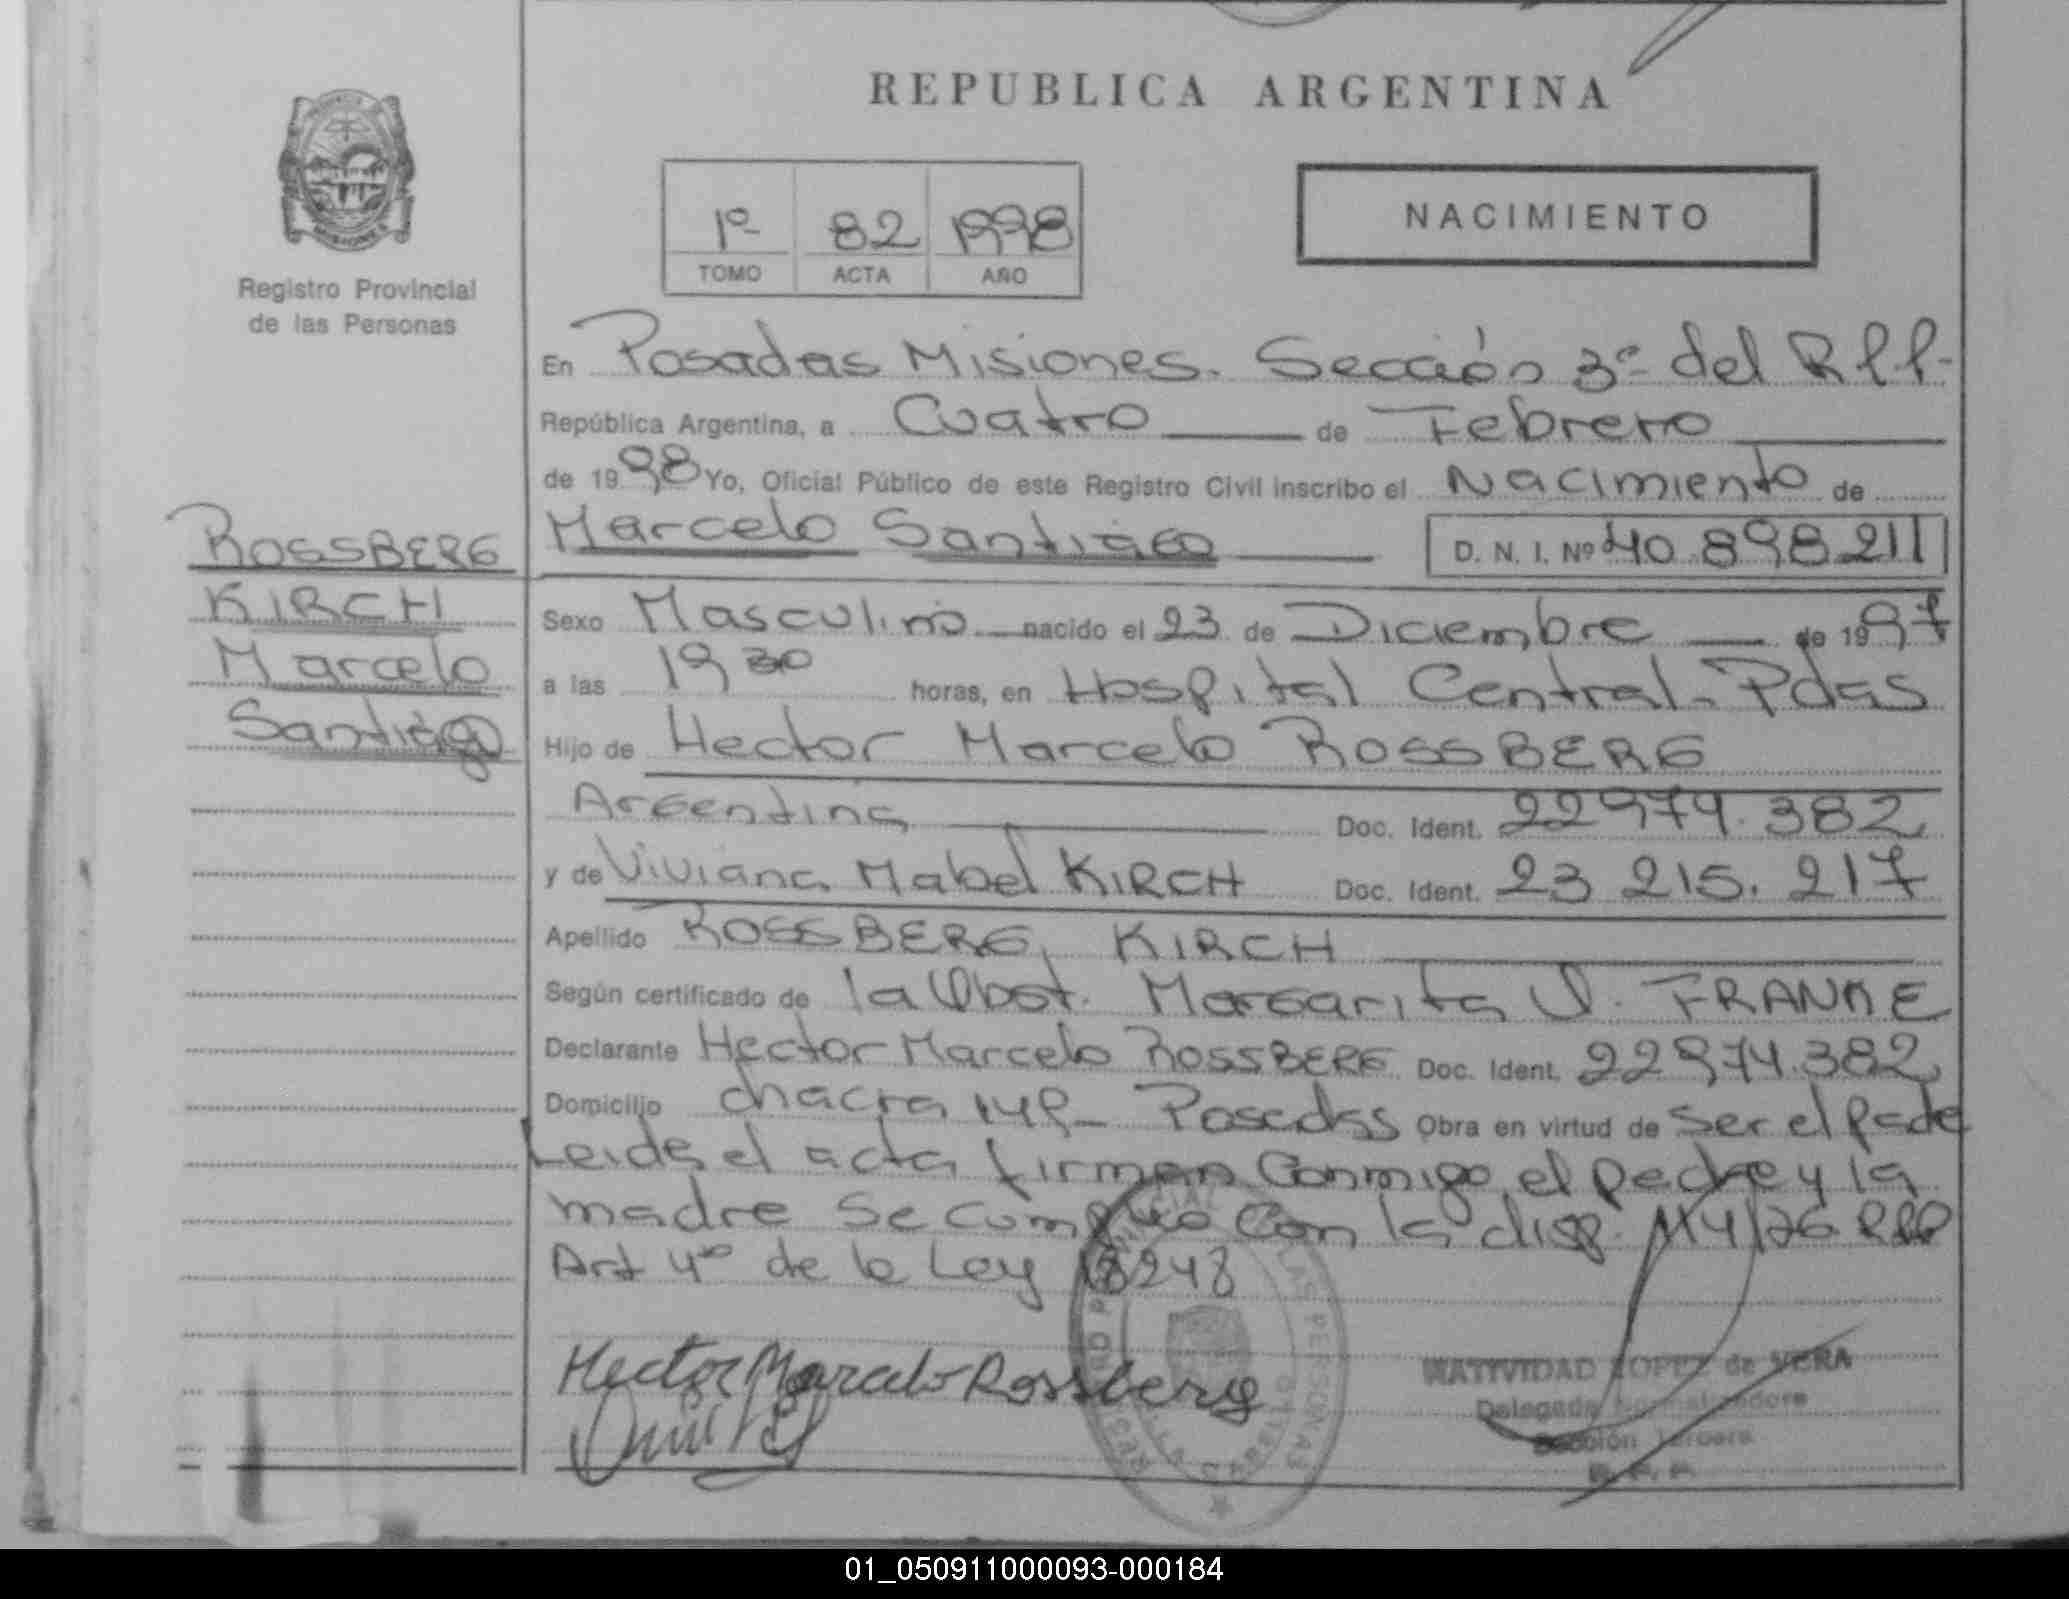 REPUBLICA ARGENTINA
MISIONES
Registro Provincial
de las Personas
1º 82 1998
TOMO ACTA AÑO
NACIMIENTO
En Posadas Misiones. Sección 3º del RPP-
República Argentina, a Cuatro de Febrero
de 1998 Yo, Oficial Público de este Registro Civil inscribo el Nacimiento de
Marcelo Santiago D. N. I. Nº 40.898.211
ROSSBERG
KIRCH
Marcelo
Santiago
Sexo Masculino nacido el 23 de Diciembre de 1997
a las 19 30 horas, en Hospital Central-Pdas
Hijo de Hector Marcelo ROSSBERG
Argentina Doc. Ident. 22974.382
y de Viviana Mabel KIRCH Doc. Ident. 23 215.217
Apellido ROSSBERG, KIRCH
Según certificado de la Obst. Margarita FRANKE
Declarante Hector Marcelo ROSSBERG Doc. Ident. 22974.382
Domicilio chacra 148- Posadas Obra en virtud de ser el padre
Leida el acta firman Conmigo el padre y la
madre Se cumplio Con la disp. 114/76 RPP
Art 4º de la Ley 18248
Hector Marcelo Rossberg
NATIVIDAD LOPEZ de VERA
Delegada Normalizadora
Sección Tercera
R. P. P.
01_050911000093-000184